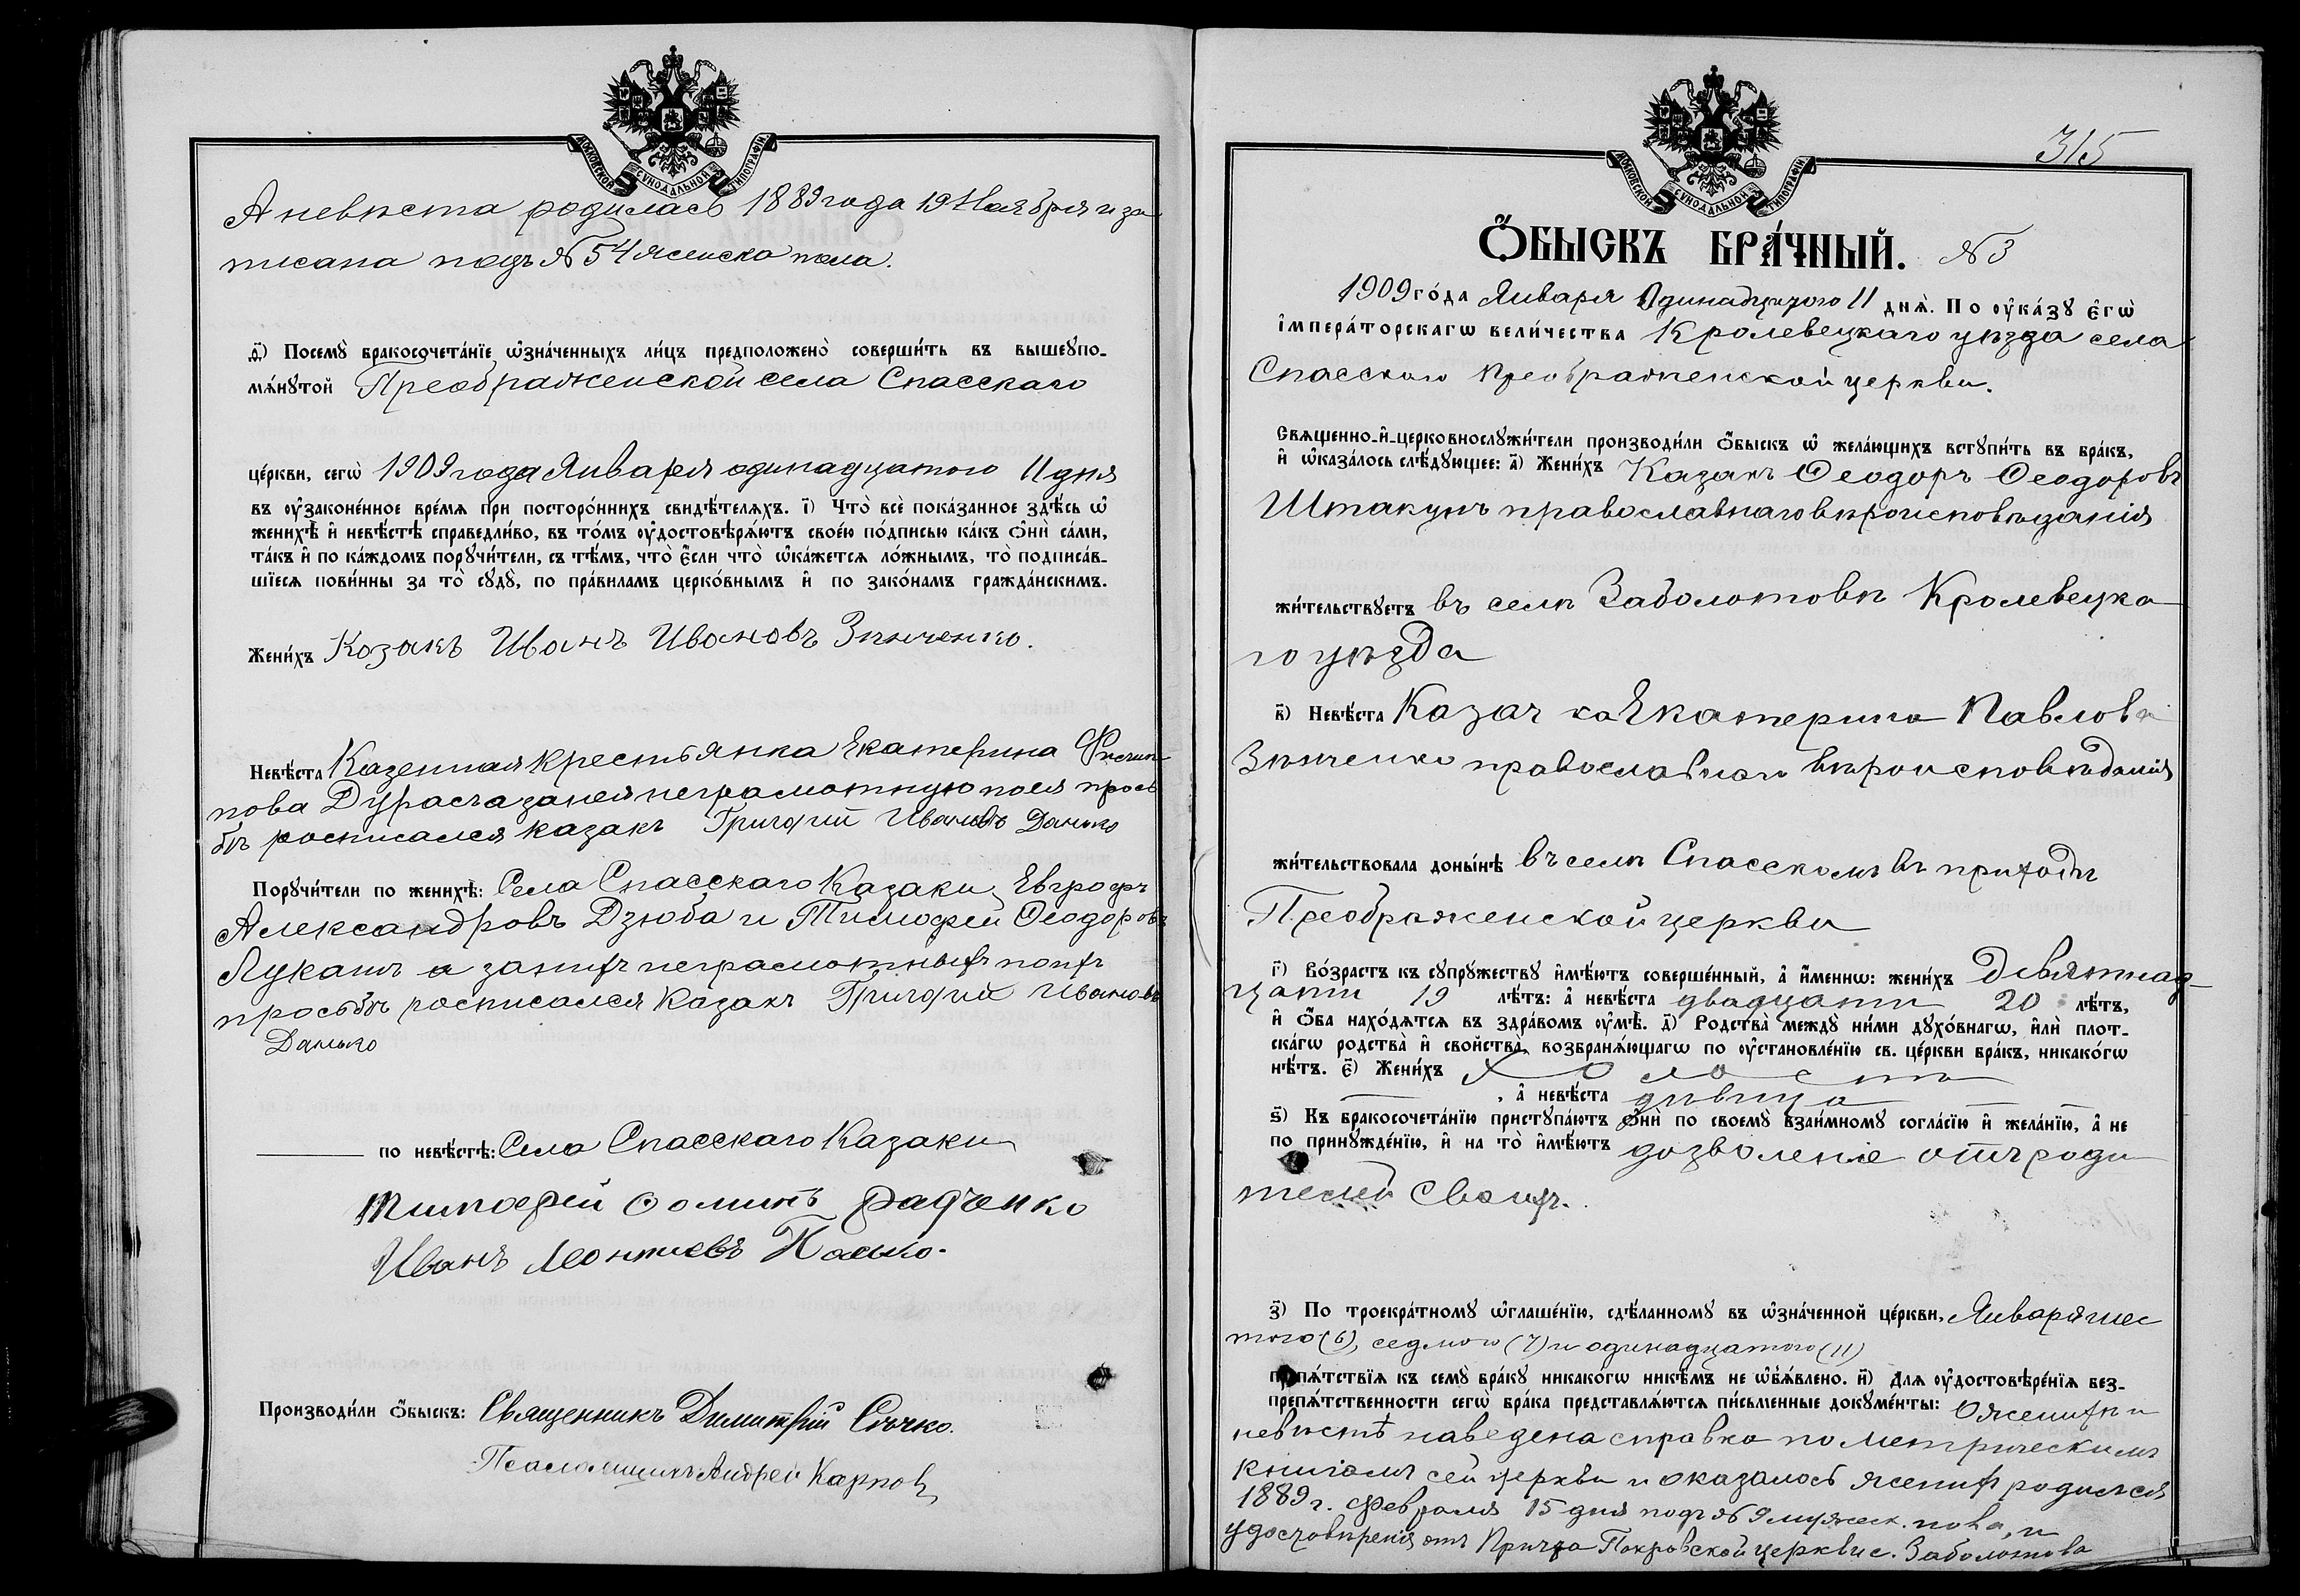 МОСКОВСКОЙ СѴНОДАЛЬНОЙ ТИПОГРАФІИ
А невѣста родилась 1889 года 19 Ноября и за
писана подъ № 54 женска пола.
д҃і) Посемꙋ̀ бракосочета́нїе ѡ҆зна́ченныхъ ли́цъ предположено̀ соверши́ть въ вышеꙋпо-
мѧ́нꙋтой Преображенской села Спасскаго
це́ркви, сегѡ̀ 1909 года Января одинадцатого 11 дня
въ ᲂу҆законе́нное вре́мѧ при посторо́ннихъ свидѣ́телѧхъ. і҃) Что̀ всѐ пока́занное здѣ́сь ѡ҆
женихѣ̀ и҆ невѣ́стѣ справедли́во, въ то́мъ ᲂу҆достовѣрѧ́ютъ свое́ю по́дписью ка́къ ѻ҆нѝ са́ми,
та́къ и҆ по ка́ждомъ порꙋчи́тели, съ тѣ́мъ, что̀ є҆́сли что̀ ѡ҆ка́жетсѧ ло́жнымъ, то̀ подписа́в-
шїесѧ пови́нны за то̀ сꙋдꙋ̀, по пра́виламъ церко́внымъ и҆ по зако́намъ гражда́нскимъ.
Жени́хъ Козакъ Иванъ Ивановъ Зѣнченко.
Невѣ́ста Казенная крестьянка Екатерина
пова Дураса за нея неграмотную по ея прось
бѣ росписался казакъ Григорий Ивановъ Данько
Порꙋчи́тели по женихѣ̀: Села Спасскаго Казаки Евграфъ
Александровъ Дзюба и Тимофей Ѳеодоровъ
Лукашъ а за нихъ неграмотныхъ по ихъ
просьбѣ росписался Казакъ Григорий Ивановъ
Данько
по невѣ́стѣ: Села Спасскаго Казаки
Тимофей Ѳоминъ Радченко
Иванъ Леонтиевъ Палько.
Производи́ли ѻ҆́быскъ: Священникъ Димитрій Сѣчко.
Псаломщикъ Андрей Карповъ
315
МОСКОВСКОЙ СѴНОДАЛЬНОЙ ТИПОГРАФІИ
Ѻ҆́БЫСКЪ БРА́ЧНЫЙ. № 3
1909 го́да Января Одинадцатого 11 днѧ̀. По ᲂу҆ка́зꙋ є҆гѡ̀
і҆мпера́торскагѡ вели́чества Кролевецкаго уѣзда села
Спасскаго Преображенской церкви.
Свѧще́нно-и҆-церковнослꙋжи́тели производи́ли ѻ҆́быскъ ѡ҆ жела́ющихъ встꙋпи́ть въ бра́къ,
и҆ ѡ҆каза́лось слѣ́дꙋющее: а҃) Жени́хъ Казакъ Ѳеодоръ Ѳеодоровъ
Штакунъ православнаго вѣроисповѣданія
жи́тельствꙋетъ въ селѣ Заболотовѣ Кролевецка
го уѣзда
в҃) Невѣ́ста Казачка Екатерина Павлова
Зѣнченко православнаго вѣроисповѣданія
жи́тельствовала доны́нѣ въ селѣ Спасскомъ въ приходѣ
Преображенской церкви
г҃) Во́зрастъ къ сꙋпрꙋ́жествꙋ и҆мѣ́ютъ соверше́нный, а҆ и҆́меннѡ: жени́хъ девятнад
цати 19 лѣ́тъ: а҆ невѣ́ста двадцати 20 лѣ́тъ,
и҆ ѻ҆́ба нахо́дѧтсѧ въ здра́вомъ ᲂу҆мѣ̀. д҃) Родства̀ междꙋ̀ ни́ми дꙋхо́внагѡ, и҆лѝ плот-
ска́гѡ родства̀ и҆ свойства̀, возбранѧ́ющагѡ по ᲂу҆становле́нїю св. це́ркви бра́къ, никако́гѡ
нѣ́тъ. є҃) Жени́хъ холостъ
, а҆ невѣ́ста дѣвица
ѕ҃) Къ бракосочета́нїю пристꙋпа́ютъ ѻ҆нѝ по своемꙋ̀ взаи́мномꙋ согла́сїю и҆ жела́нїю, а҆ не
по принꙋжде́нїю, и҆ на то̀ и҆мѣ́ютъ дозволеніе отъ роди
телей своихъ.
з҃) По троекра́тномꙋ ѡ҆глаше́нїю, сдѣ́ланномꙋ въ ѡ҆зна́ченной це́ркви, Января шес
того (6), седмого (7) и одинадцатого (11)
препѧ́тствїѧ къ семꙋ̀ бра́кꙋ никако́гѡ никѣ́мъ не ѡ҆б̾ѧ́влено. и҃) Длѧ ᲂу҆достовѣре́нїѧ без-
препѧ́тственности сегѡ̀ бра́ка представлѧ́ютсѧ пи́сьменные докꙋме́нты: О женихѣ и
невѣстѣ наведена справка по метрическимъ
книгамъ сей церкви и оказалось женихъ родился
1889 г. Февраля 15 дня подъ № 9 мужеск. пола, и
удостовѣренія отъ Причта Покровской церкви с. Заболотова